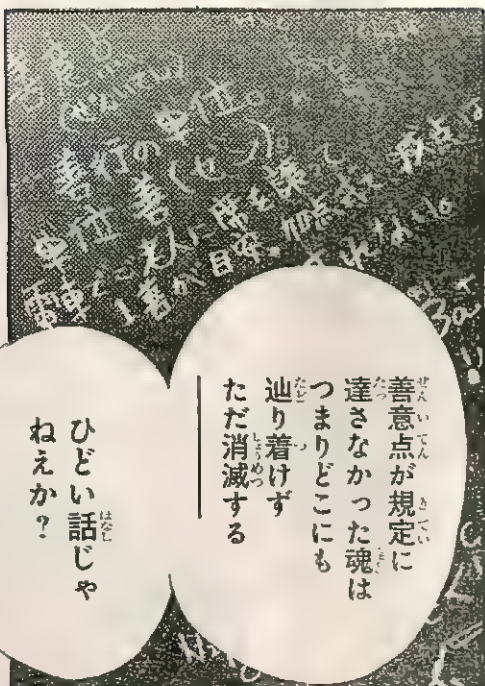 善行の単位。
単位 善(ぜん)。
1善が目安。
善意点が規定に
達さなかった魂は
つまりどこにも
辿り着けず
ただ消滅する
ひどい話じゃ
ねえか？